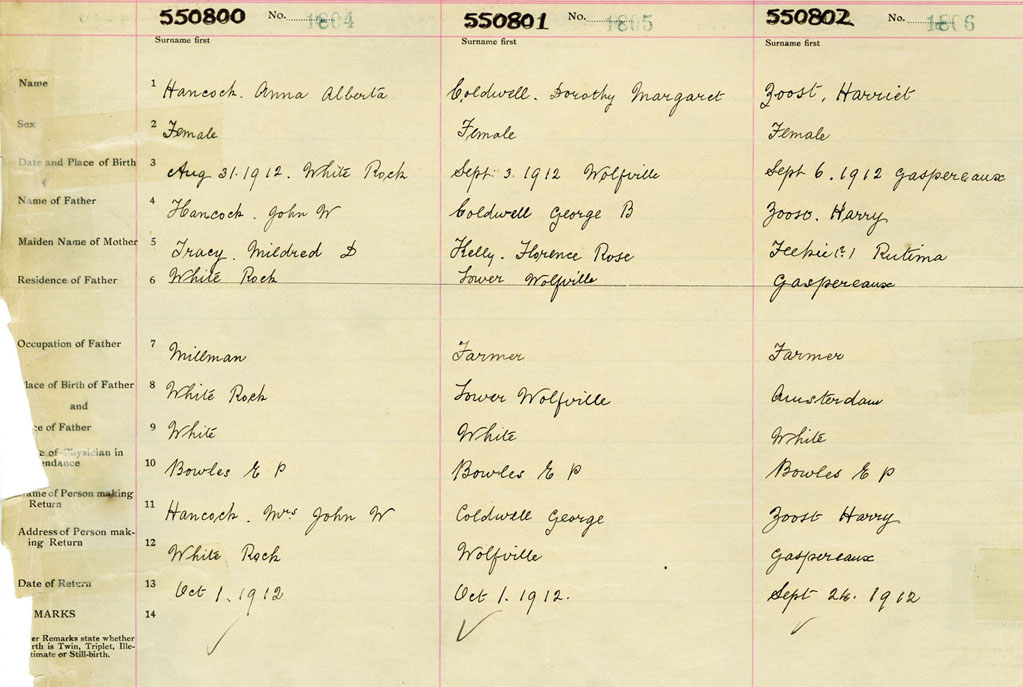 550800 No. 1804 550801 No. 1805 550802 No. 1806
Surname first Surname first Surname first
Name 1 Hancock. Anna Alberta Coldwell. Dorothy Margaret Zoost, Harriet
Sex 2 Female Female Female
Date and Place of Birth 3 Aug 31. 1912. White Rock Sept. 3. 1912 Wolfville Sept 6. 1912 Gaspereaux
Name of Father 4 Hancock. John W Coldwell George B Zoost. Harry
Maiden Name of Mother 5 Tracy. Mildred D Kelly. Florence Rose Rutima
Residence of Father 6 White Rock Lower Wolfville Gaspereaux
Occupation of Father 7 Millman Farmer Farmer
lace of Birth of Father 8 White Rock Lower Wolfville Amsterdam
and
ce of Father 9 White White White
e of Physician in
endance 10 Bowles E P Bowles E P Bowles E P
ame of Person making
Return 11 Hancock. Mrs John W Coldwell George Zoost Harry
Address of Person mak-
ing Return 12 White Rock Wolfville Gaspereaux
Date of Return 13 Oct 1. 1912 Oct 1. 1912. Sept 24. 1912
MARKS 14
er Remarks state whether
rth is Twin, Triplet, Ille-
timate or Still-birth.